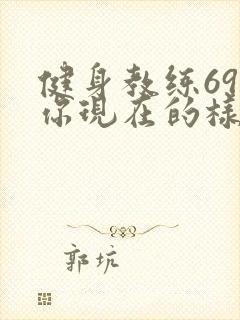 健身教练69
你現在的樣
郭坑